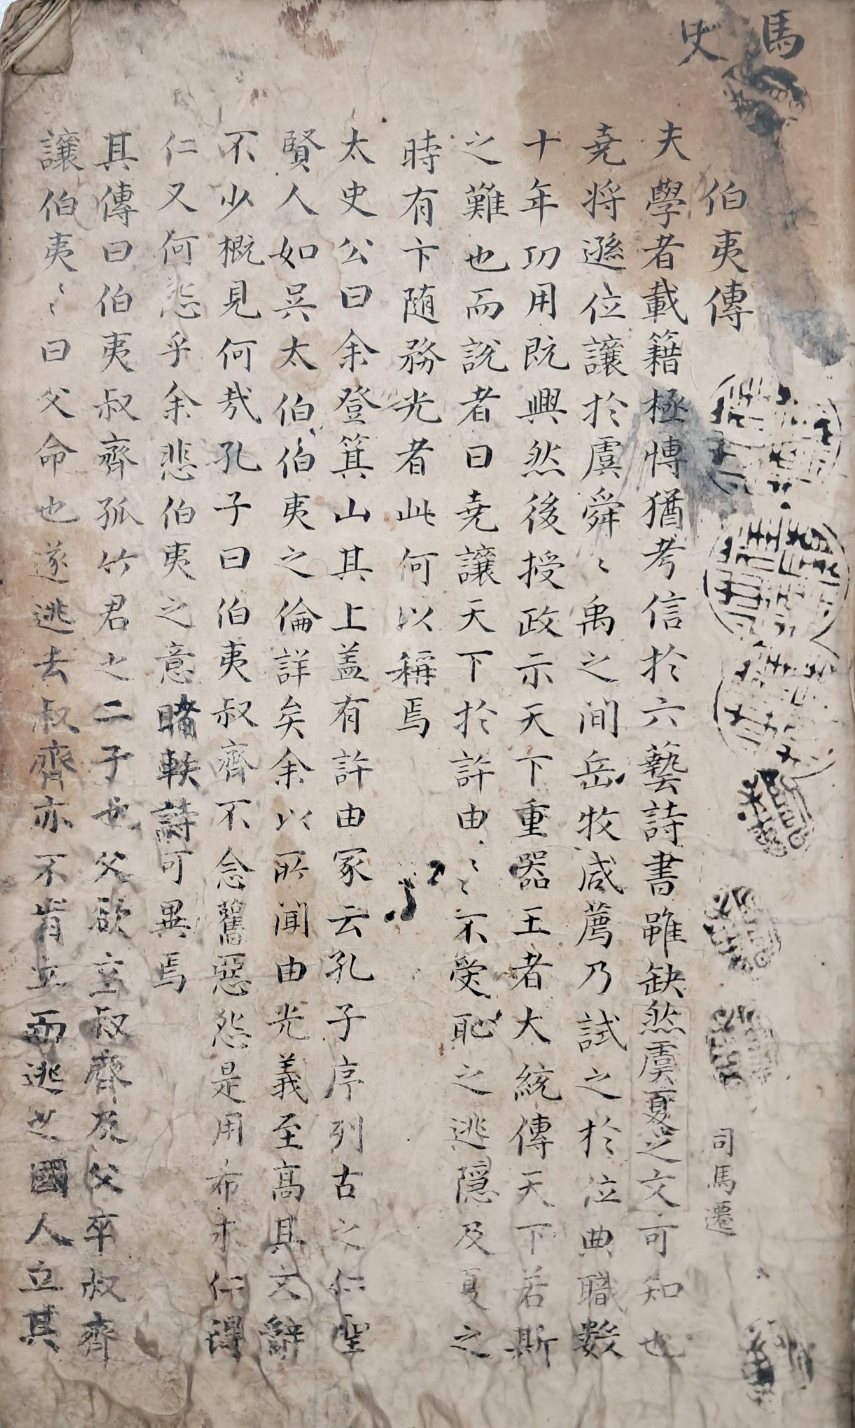 馬史
伯夷傳 司馬遷
夫學者載籍極愽猶考信於六藝詩書雖缺然虞夏之文可知也
尭将遜位讓於虞舜〻禹之间岳牧咸薦乃試之於位典職数
十年功用既興然後授政示天下重器王者大統傳天下若斯
之難也而說者曰尭讓天下於許由〻不受恥之逃隠及夏之
時有卞随務光者此何以稱焉
太史公曰余登箕山其上盖有許由冢云孔子序列古之仁聖
賢人如吴太伯伯夷之倫詳矣余以所闻由光義至髙其文辭
不少概見何㢤孔子曰伯夷叔齊不念舊惡怨是用希求仁得
仁又何怨乎余悲伯夷之意睹軼詩可異焉
其傳曰伯夷叔齊孤竹君之二子也父欲立叔齊及父卒叔齊
讓伯夷〻曰父命也遂逃去叔齊亦不肯立而逃之國人立其